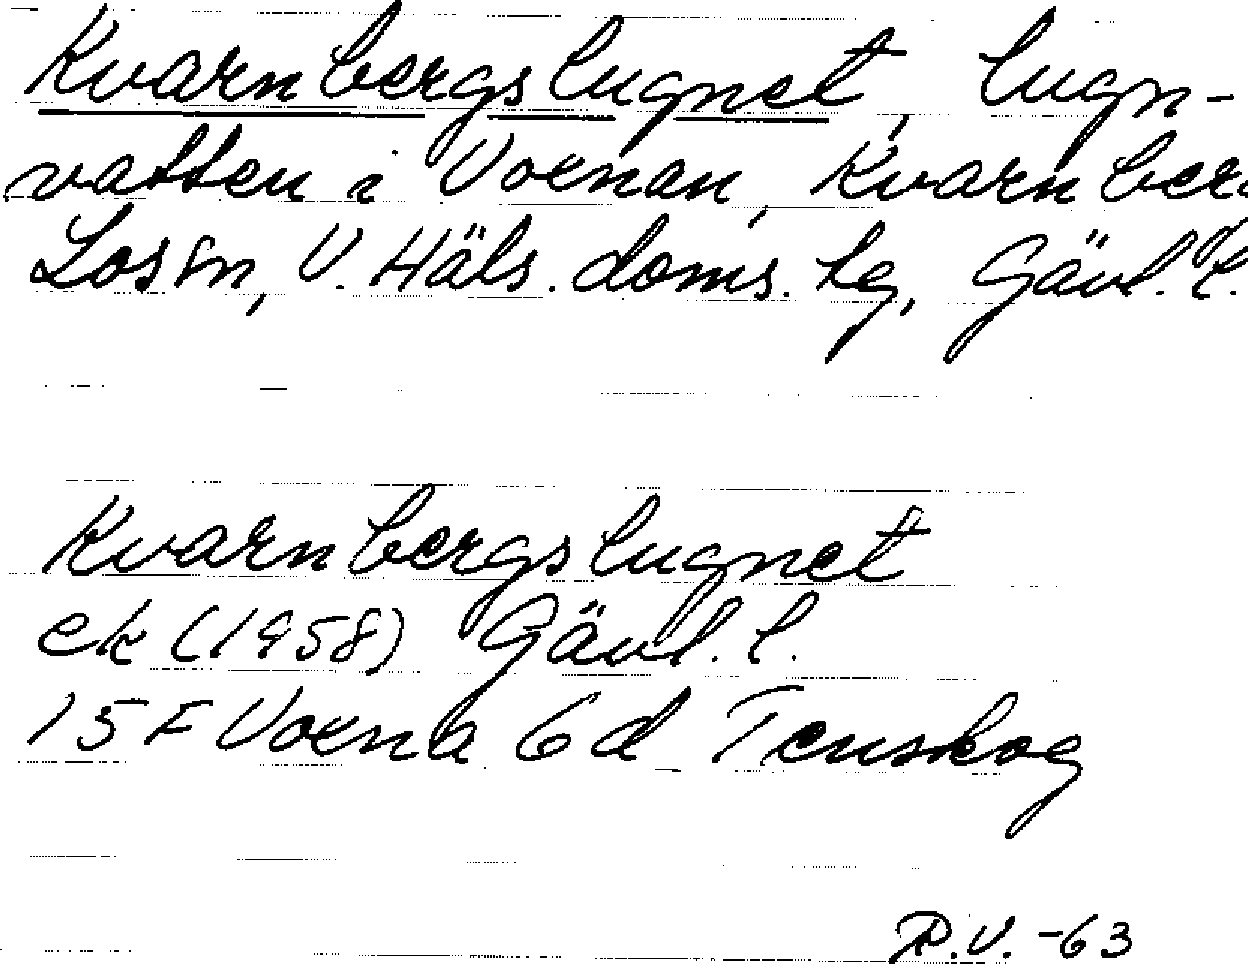 Kvarnbergslugnet, lugn-
vatten i Voxnan, Kvarnberg
Los sn, V. Häls. doms. lg, Gävl. l.
Kvarnbergslugnet
ek (1958) Gävl. l.
15 F Voxna 6 d Tenskog
R.V. -63